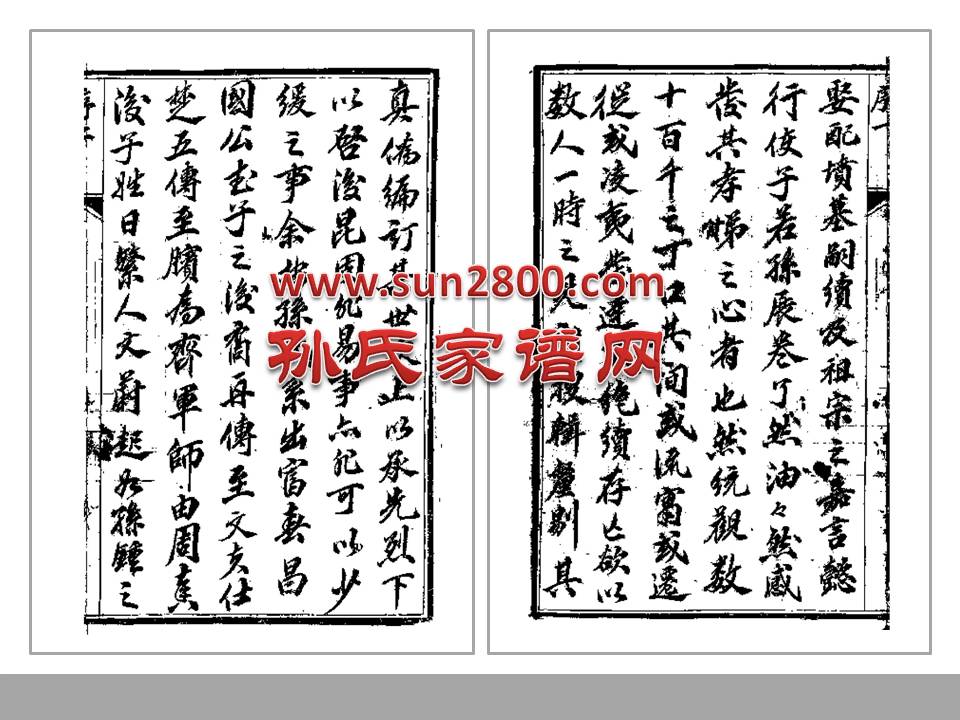 娶配墳墓嗣續及祖宗之嘉言懿
行使子若孫展卷了然油々然感
發其孝悌之心者也然統觀數
十百千之丁口其间或流寓或遷
從或凌夷 遠 絶續存亡欲以
数人一時之見 搜輯釐剔其
真偽編訂其世 上以承先烈下
以啓後昆固非易事亦非可以少
緩之事余 孫 系出富春昌
國公 子之後裔再傳至文 仕
楚五傳至臏為齊軍師由周 
後子姓日繁人文蔚起如孫鍾之
www.sun2800.com
孙氏家谱网